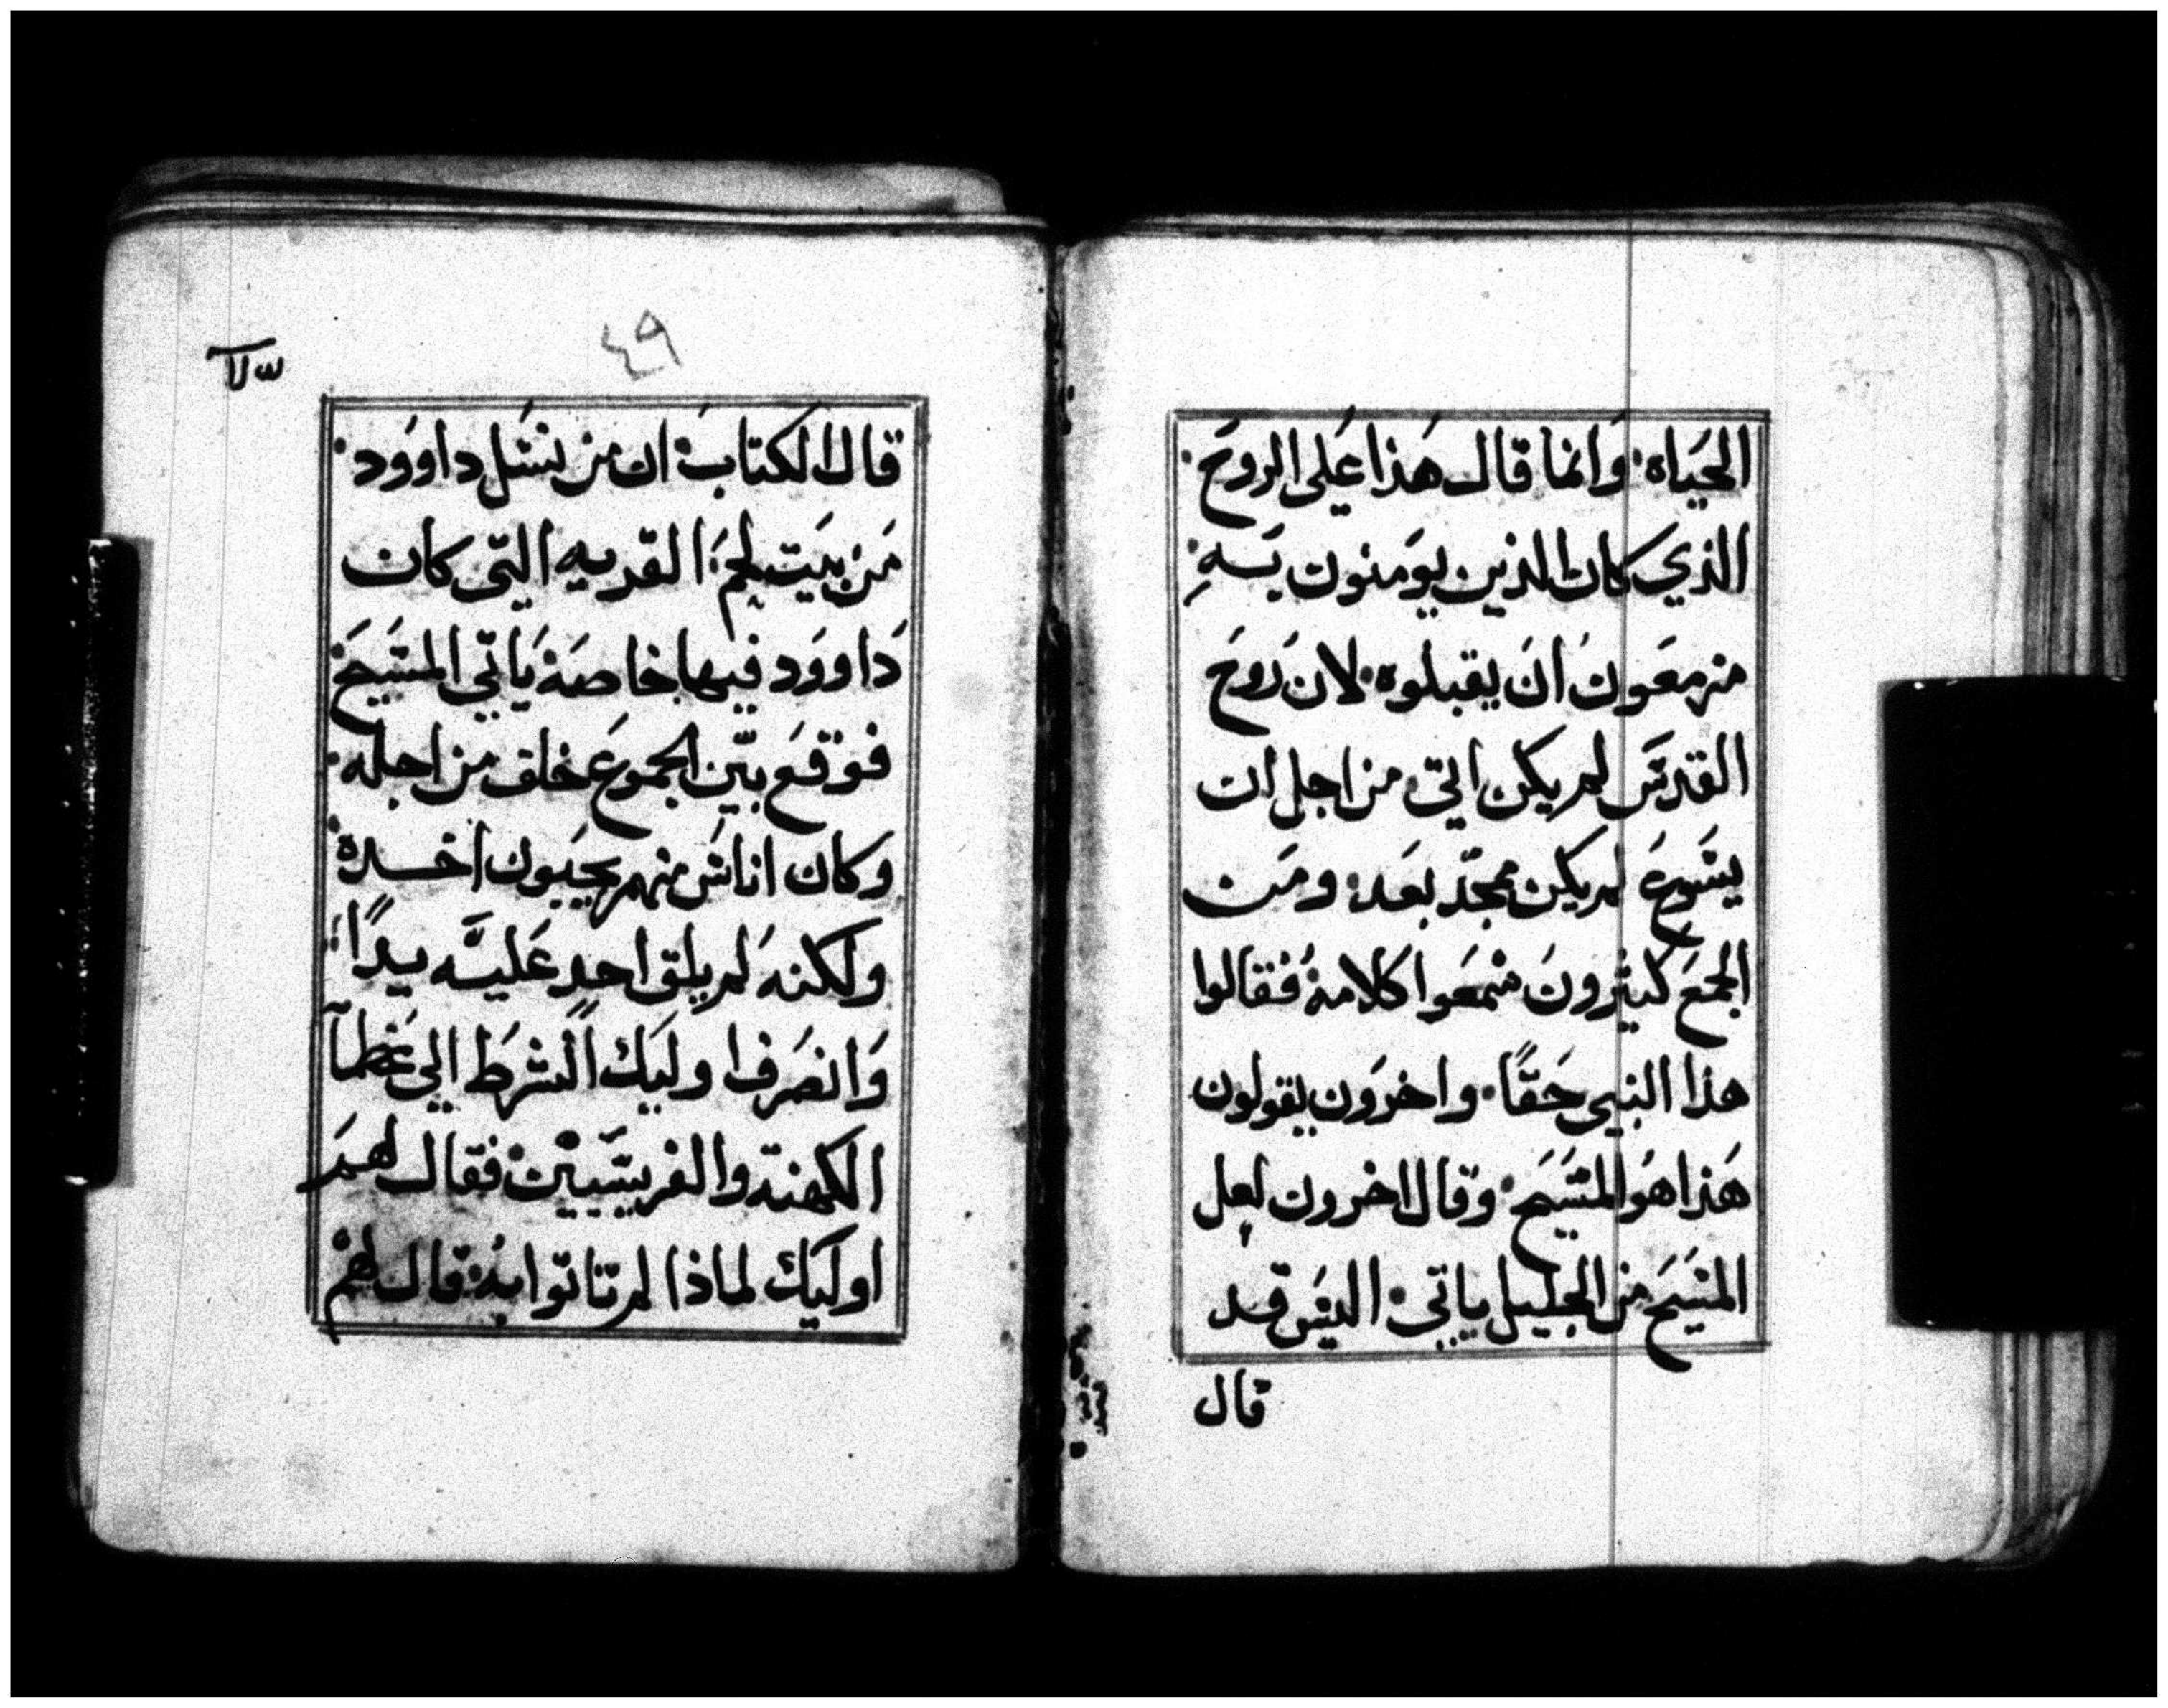 الحَياه٠ وَانما قال هَذا عَلى الروَح٠
الذي كان الذين يومنون بَـهِ
مزمعَون انَ يقبلوه٠ لان رَوحَ
القدسَ لم يكن اتيَ٠ من اجل ان
يسَوعَ لم يكن مجّد بعَد٠ ومَن
الجمعَ كثيرونَ سَمعَوا كلامهُ فقالوا
هذا النبي حَقًا٠ واخرَون يقولون
هَذا هوَ المسَيحَ٠ وقال اخرون لعل
المسَيحَ من الجليل ياتي٠ اليسَ قد
قال
٤٩
قال الكتابَ٠ ان من نسَل داووَد٠
مَن بيَت لحمَ٠ القريه التّي كان
دَاووَد فيها خاصَة يَاتّي المسَيحَ
فوقعَ بيّن الجموعَ خلف من اجله٠
وكان اناسَ منهم يحبَون اخـده
ولكنهَ لم يلق احدٍ عَليـَه يـدًا
وَانصَرفوا وليَك الشرَط الي عَظمآ
الكهنة والفريسَيينَ٠ فقال لهمَ
اوليَك لماذا لم تاتوا بهُ٠ قال لهمَ